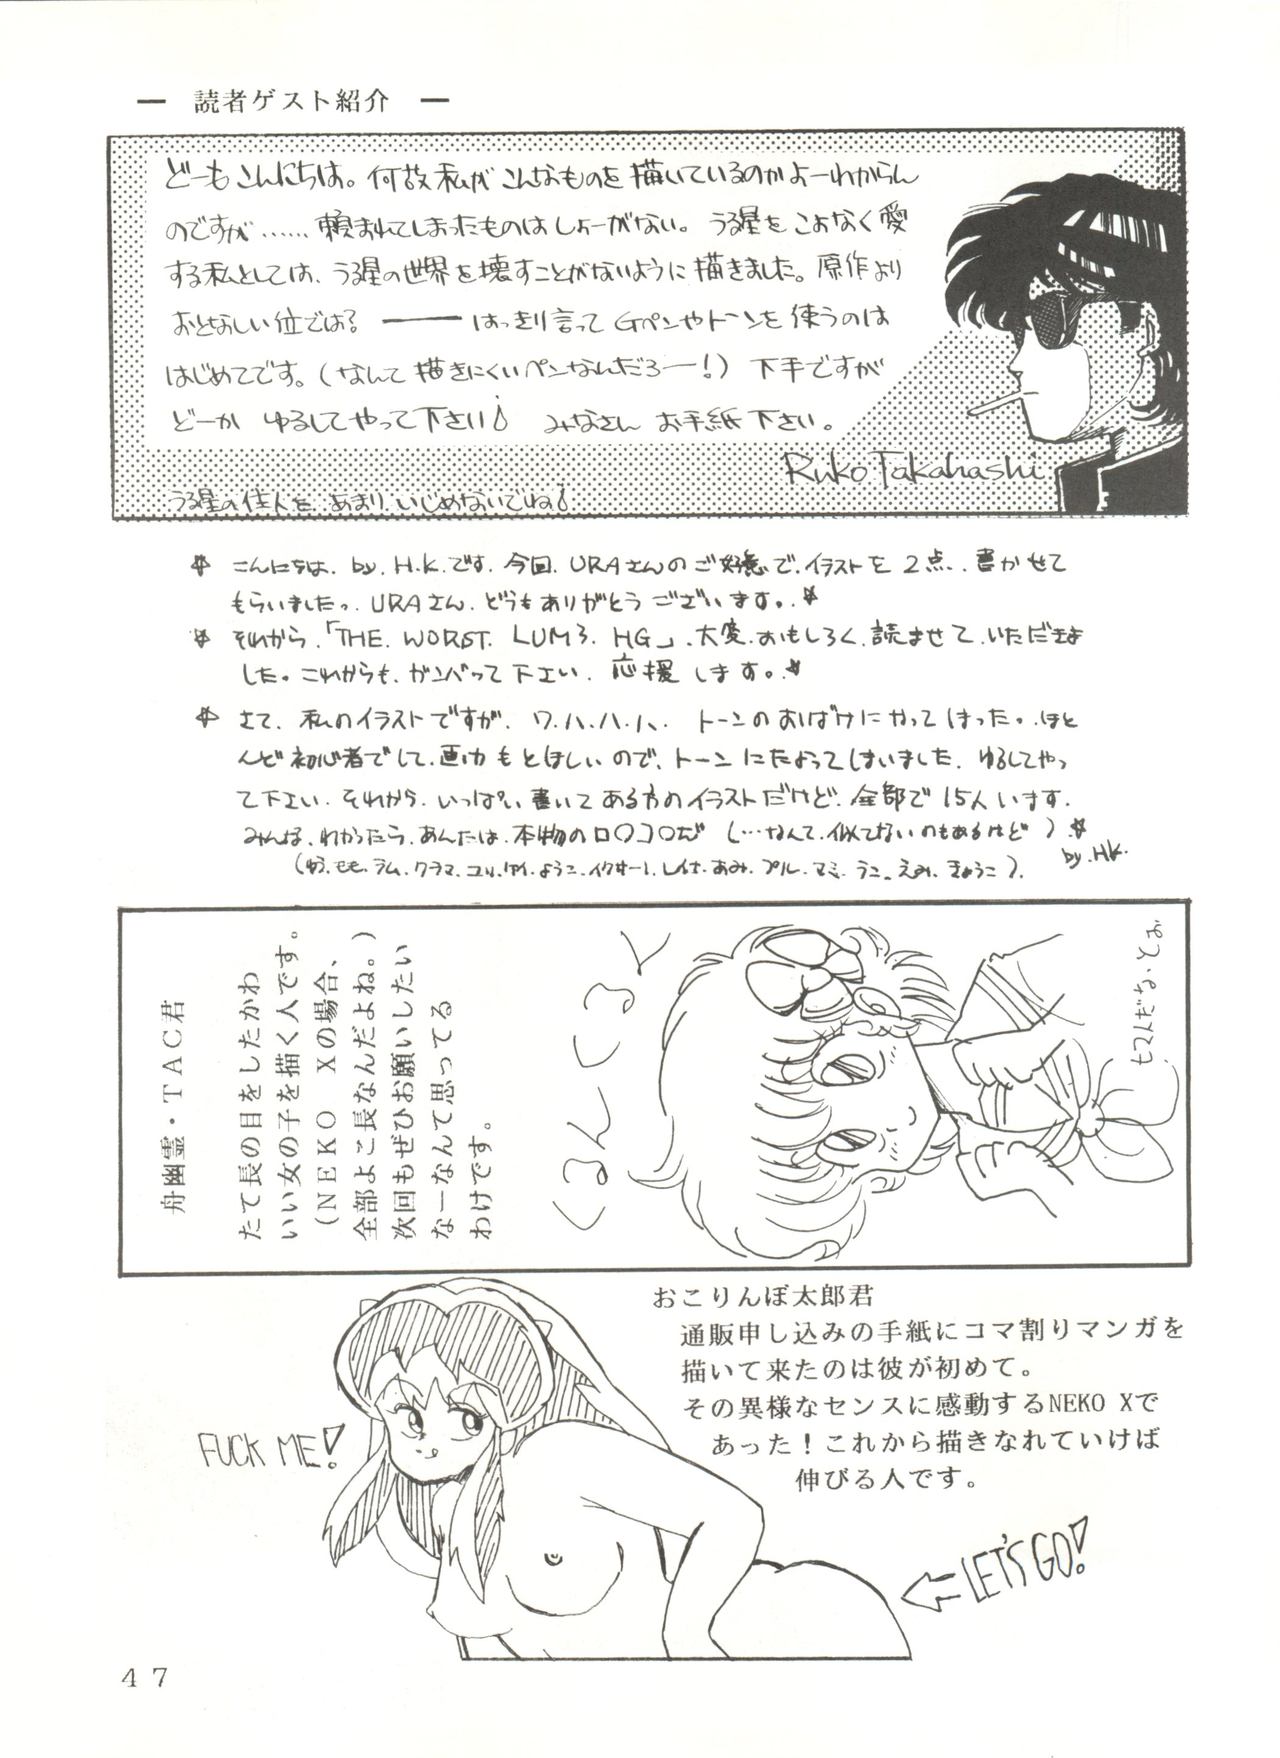 ― 読者ゲスト紹介 ―
どーもこんにちは。何故私がこんなものを描いているのかよーわからん
のですが……頼まれてしまったものはしょーがない。うる星をこよなく愛
する私としては、うる星の世界を壊すことがないように描きました。原作より
おとなしい位では? ――― はっきり言ってGペンやトーンを使うのは
はじめてです。(なんて描きにくいペンなんだろー!) 下手ですが
どーか ゆるしてやって下さい みなさん お手紙下さい。
Ruko Takahashi
うる星の住人を あまり いじめないでね
☆ こんにちは、by, H.K.です。今回、URAさんのご好意で、イラストを2点、書かせて
もらいましたっ、URAさん、どうもありがとうございます。☆
☆ それから、「THE WORST LUM3 HG」、大変、おもしろく、読ませて、いただきま
した。これからも、ガンバって下さい、応援します。☆
☆ さて、私のイラストですが、ワ,ハ,ハ,ハ、トーンのおばけにやってしまった。ほと
んど初心者でして、画力もとぼしいので、トーンにたよってしまいました、ゆるしてやっ
て下さい、それから、いっぱい書いてある方のイラストだけど、全部で15人います、
みんな、わかったら、あんたは、本物のロ〇コ〇だ (…なんて、似てないのもあるけど)☆
by, H.K.
(ゆう、モモ、ラム、クラマ、ユリ、ゆい、ようこ、イクサー1、レイナ、あみ、プル、マミ、うこ、えみ、きょうこ)、
舟幽霊・TAC君
たて長の目をしたかわ
いい女の子を描く人です。
(NEKO Xの場合、
全部よこ長なんだよね。)
次回もぜひお願いしたい
なーなんて思ってる
わけです。
くるんくるん
おこりんぼ太郎君
通販申し込みの手紙にコマ割りマンガを
描いて来たのは彼が初めて。
その異様なセンスに感動するNEKO Xで
あった!これから描きなれていけば
伸びる人です。
FUCK ME!
LET'S GO!
47